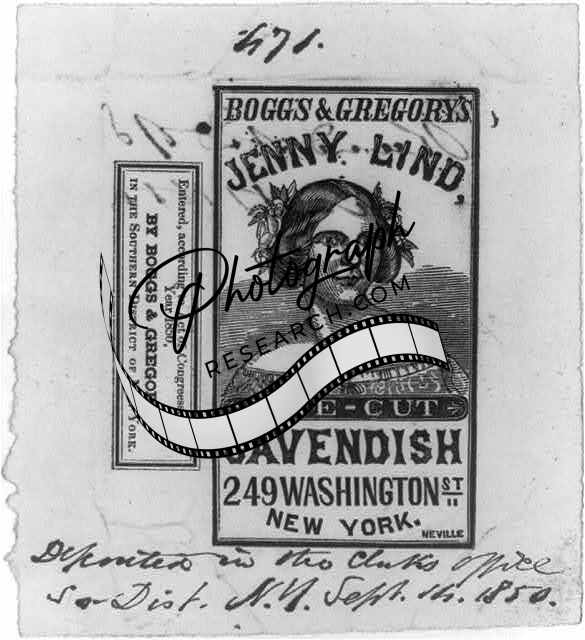 471.
BOGGS & GREGORY'S
JENNY LIND,
E-CUT
CAVENDISH
249 WASHINGTON ST
NEW YORK.
NEVILLE
Entered, according Act of Congress
Year 1850,
BY BOGGS & GREGORY
IN THE SOUTHERN DISTRICT OF YORK.
Photograph
RESEARCH.COM
Deposited in the Clerks office
So Dist. N.Y. Sept. 14. 1850.